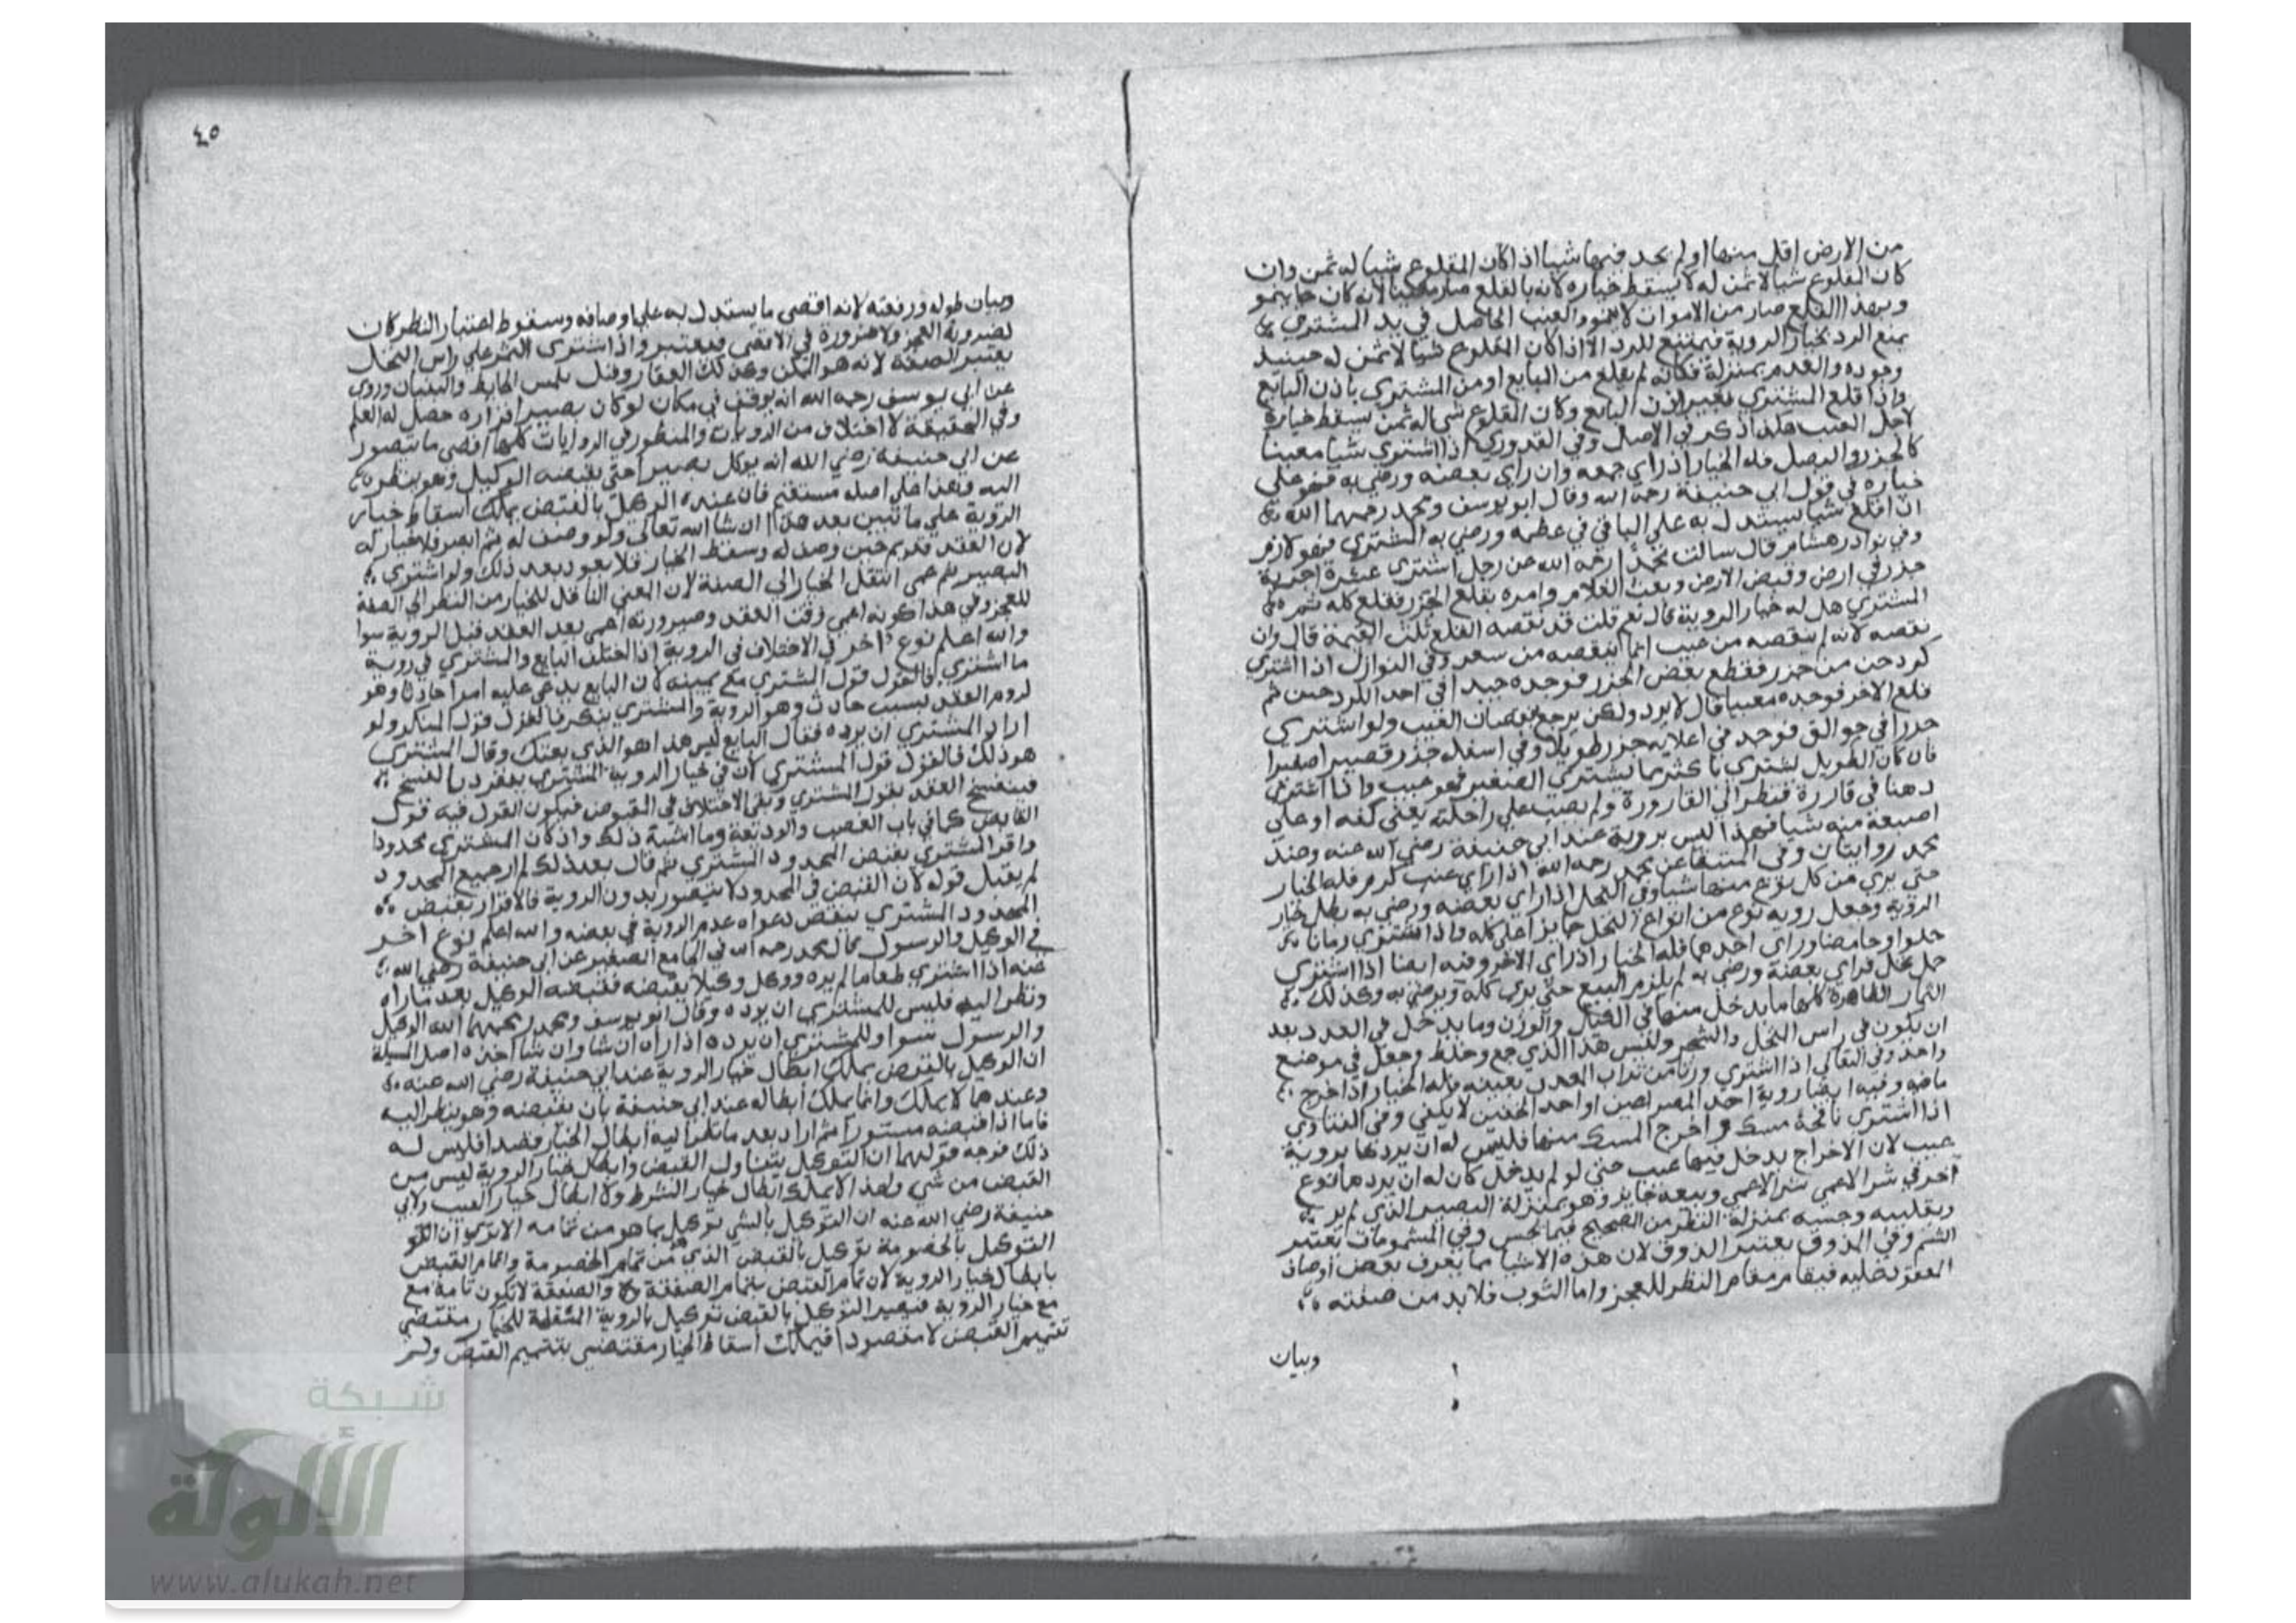 من الارض اقل منها او لم يجد فيها شيا اذا كان المقلوع شيا له ثمن وان
كان المقلوع شيا لا ثمن له لا يسقط خياره لانه بالقلع صار معيبا لانه كان حيا ينمو
وبهذا القلع صار من الاموات لا ينمو والعيب الحاصل في يد المشتري
يمنع الرد بخيار الروية فيمتنع الرد الا اذا كان المقلوع شيا لا ثمن له حينيذ
وجوده والعدم بمنزلة فكانه لم يقلع من البايع او من المشتري باذن البايع
واذا قلع المشتري بغير اذن البايع وكان المقلوع شي له ثمن سقط خياره
لاجل العيب هكذا ذكر في الاصل وفي القدوري اذا اشتري شيا معينا
كالجزر والبصل فله الخيار اذا راي جمعه وان راي بعضه ورضي به فهو علي
خياره في قول ابي حنيفة رحمه الله وقال ابو يوسف ومحمد رحمهما الله
ان اقلع شيا يستدل به علي الباقي في عظمه ورضي به المشتري فهو لازم
وفي نوادر هشام قال سالت محمدا رحمه الله عن رجل اشتري عشرة اجربة
جزر في ارض وقبض الارض وبعث الغلام وامره بقلع الجزر فقلع كله
المشتري هل له خيار الروية قال نعم قلت قد نقصه القلع ثلث القيمة قال وان
نقصه لانه لم ينقصه من عيب انما ينقصه من سعر وفي النوازل اذا اشتري
كردحن من جزر فقطع بعض الجزر فوجده جيدا في احد الكردحين ثم
قلع الاخر فوجده معيبا قال لا يرد ولكن يرجع بنقصان العيب ولو اشتري
جزرا في جوالق فوجد في اعلاه جزر طويلا وفي اسفله جزر قصيرا صغيرا
فان كان الطويل يشتري باكثر مما يشتري الصغير فهو عيب واذا اشتري
دهنا في قارورة فنظر الي القارورة ولم يصب علي راحلته يعني كفه او علي
اصبعه منه شيا فهذا ليس بروية عند ابي حنيفة رضي الله عنه وعند
محمد روايتان وفي المنتقا عن محمد رحمه الله اذا راي عنب كرم فله الخيار
حتي يري من كل نوع منها شيا وفي النخل اذا راي بعضه ورضي به بطل خيار
الروية وجعل روية نوع من انواع النخل جايزا علي كله واذا اشتري رمانا
حلوا وحامضا وراي احدهما فله الخيار اذا راي الاخر وفيه ايضا اذا اشتري
حمل نخل فراي بعضه ورضي به لم يلزم البيع حتي يري كله ويرضي به وكذلك
الثمار الظاهرة كلها ما يدخل منها في الكيل والوزن وما يدخل في العدد بعد
ان يكون في راس النخل والشجر وليس هذا الذي جمع وخلط وجعل في موضع
واحد وفي البقالي اذا اشتري وزنا من تراب المعدن بعينه فله الخيار اذا اخرج
ما فيه وفيه ايضا روية احد المصراعين او احد الخفين لا يكفي وفي الفتاوي
اذا اشتري نافحة مسك واخرج المسك منها فليس له ان يردها بروية
عيب لان الاخراج يدخل فيها عيب حتي لو لم يدخل كان له ان يردها نوع
آخر في شرا الاعمي شرا الاعمي وبيعه جايز وهو بمنزلة البصير الذي لم ير
وتقليبه وجسه بمنزلة النظر من الصحيح فيما يجس وفي المشمومات يعتبر
الشم وفي المذوق يعتبر الذوق لان هذه الاشيا مما يعرف بعض اوصاف
المعقود عليه فيقام مقام النظر للعجز واما الثوب فلا بد من صفته
وبيان
٤٥
وبيان طوله ورفعته لانه اقصي ما يستدل به علي اوصافه وسقوط اعتبار النظر كان
لضرورة العجز ولا ضرورة في الاقصي فيعتبر واذا اشتري الثمر علي راس النخل
يعتبر الصفة لانه هو الممكن وكذلك العقار وقيل يلمس الحايط والبنيان وروي
عن ابي يوسف رحمه الله انه يوقف في مكان لو كان بصيرا فراره حصل له العلم
وفي الحقيقة لا اختلاف من الروايات والمنظور في الروايات كلها اقصي ما يتصور
عن ابي حنيفة رضي الله انه يوكل بصيرا حتي يقبضه الوكيل وهو ينظر
اليه وهذا علي اصله مستقيم فان عنده الوكيل بالقبض يملك اسقاط خيار
الروية علي ما تبين بعد هذا ان شا الله تعالي ولو وصف له ثم ابصر فلا خيار له
لان العقد قد تم حين وصف له وسقط الخيار فلا يعود بعد ذلك ولو اشتري
البصير ثم عمي انتقل الخيار الي الصفة لان المعني الناقل للخيار من النظر الي الصفة
للعجز وفي هذا كونه اعمي وقت العقد وصيرورته اعمي بعد العقد قبل الروية سوا
والله اعلم نوع آخر في الاختلاف في الروية اذا اختلف البايع والمشتري في روية
ما اشتري فالقول قول المشتري مع يمينه لان البايع يدعي عليه امرا حادثا وهو
لزوم العقد بسبب حادث وهو الروية والمشتري ينكر فالقول قول المنكر ولو
اراد المشتري ان يرده فقال البايع ليس هذا هو الذي بعتك وقال المشتري
هو ذلك فالقول قول المشتري لان في خيار الروية المشتري ينفرد بالفسخ
فينفسخ العقد بقول المشتري وبقي الاختلاف في المقبوض فيكون القول فيه قول
القابض كما في باب الغصب والوديعة وما اشبه ذلك واذا كان المشتري محدودا
واقر المشتري بقبض المحدود المشتري ثم قال بعد ذلك لم ار جميع المحدود
لم يقبل قوله لان القبض في المحدود لا يتصور بدون الروية فالاقرار بقبض
المحدود المشتري ينقض دعواه عدم الروية في بعضه والله اعلم نوع اخر
في الوكيل والرسول قال محمد رحمه الله في الجامع الصغير عن ابي حنيفة رضي الله
عنه اذا اشتري طعاما لم يره ووكل وكيلا بقبضه فقبضه الوكيل بعد ما راه
ونظر اليه فليس للمشتري ان يرده وقال ابو يوسف ومحمد رحمهما الله الوكيل
والرسول سوا وللمشتري ان يرده اذا راه ان شا وان شا اخذه اصل المسيلة
ان الوكيل بالقبض يملك ابطال خيار الروية عند ابي حنيفة رضي الله عنه
وعندهما لا يملك وانما يملك ابطاله عند ابي حنيفة بان يقبضه وهو ينظر اليه
فاما اذا قبضه مستورا ثم اراد بعد ما نظر اليه ابطال الخيار قصدا فليس له
ذلك فوجه قولهما ان التوكيل يتناول القبض وابطال خيار الروية ليس من
القبض من شي ولهذا لا يملك ابطال خيار الشرط ولا ابطال خيار العيب ولابي
حنيفة رضي الله عنه ان التوكيل بالشي توكيل بما هو من تمامه الا تري ان
التوكيل بالخصومة توكيل بالقبض الذي هو من تمام الخصومة واتمام القبض
بابطال خيار الروية لان تمام القبض بتمام الصفقة والصفقة لا تكون تامة مع
مع خيار الروية فيصير التوكيل بالقبض توكيل بالروية المسقطة للخيار مقتضي
تتميم القبض لا مقصودا فيملك اسقاط الخيار مقتضي بتتميم القبض ولم
شبكة
الألوكة
www.alukah.net